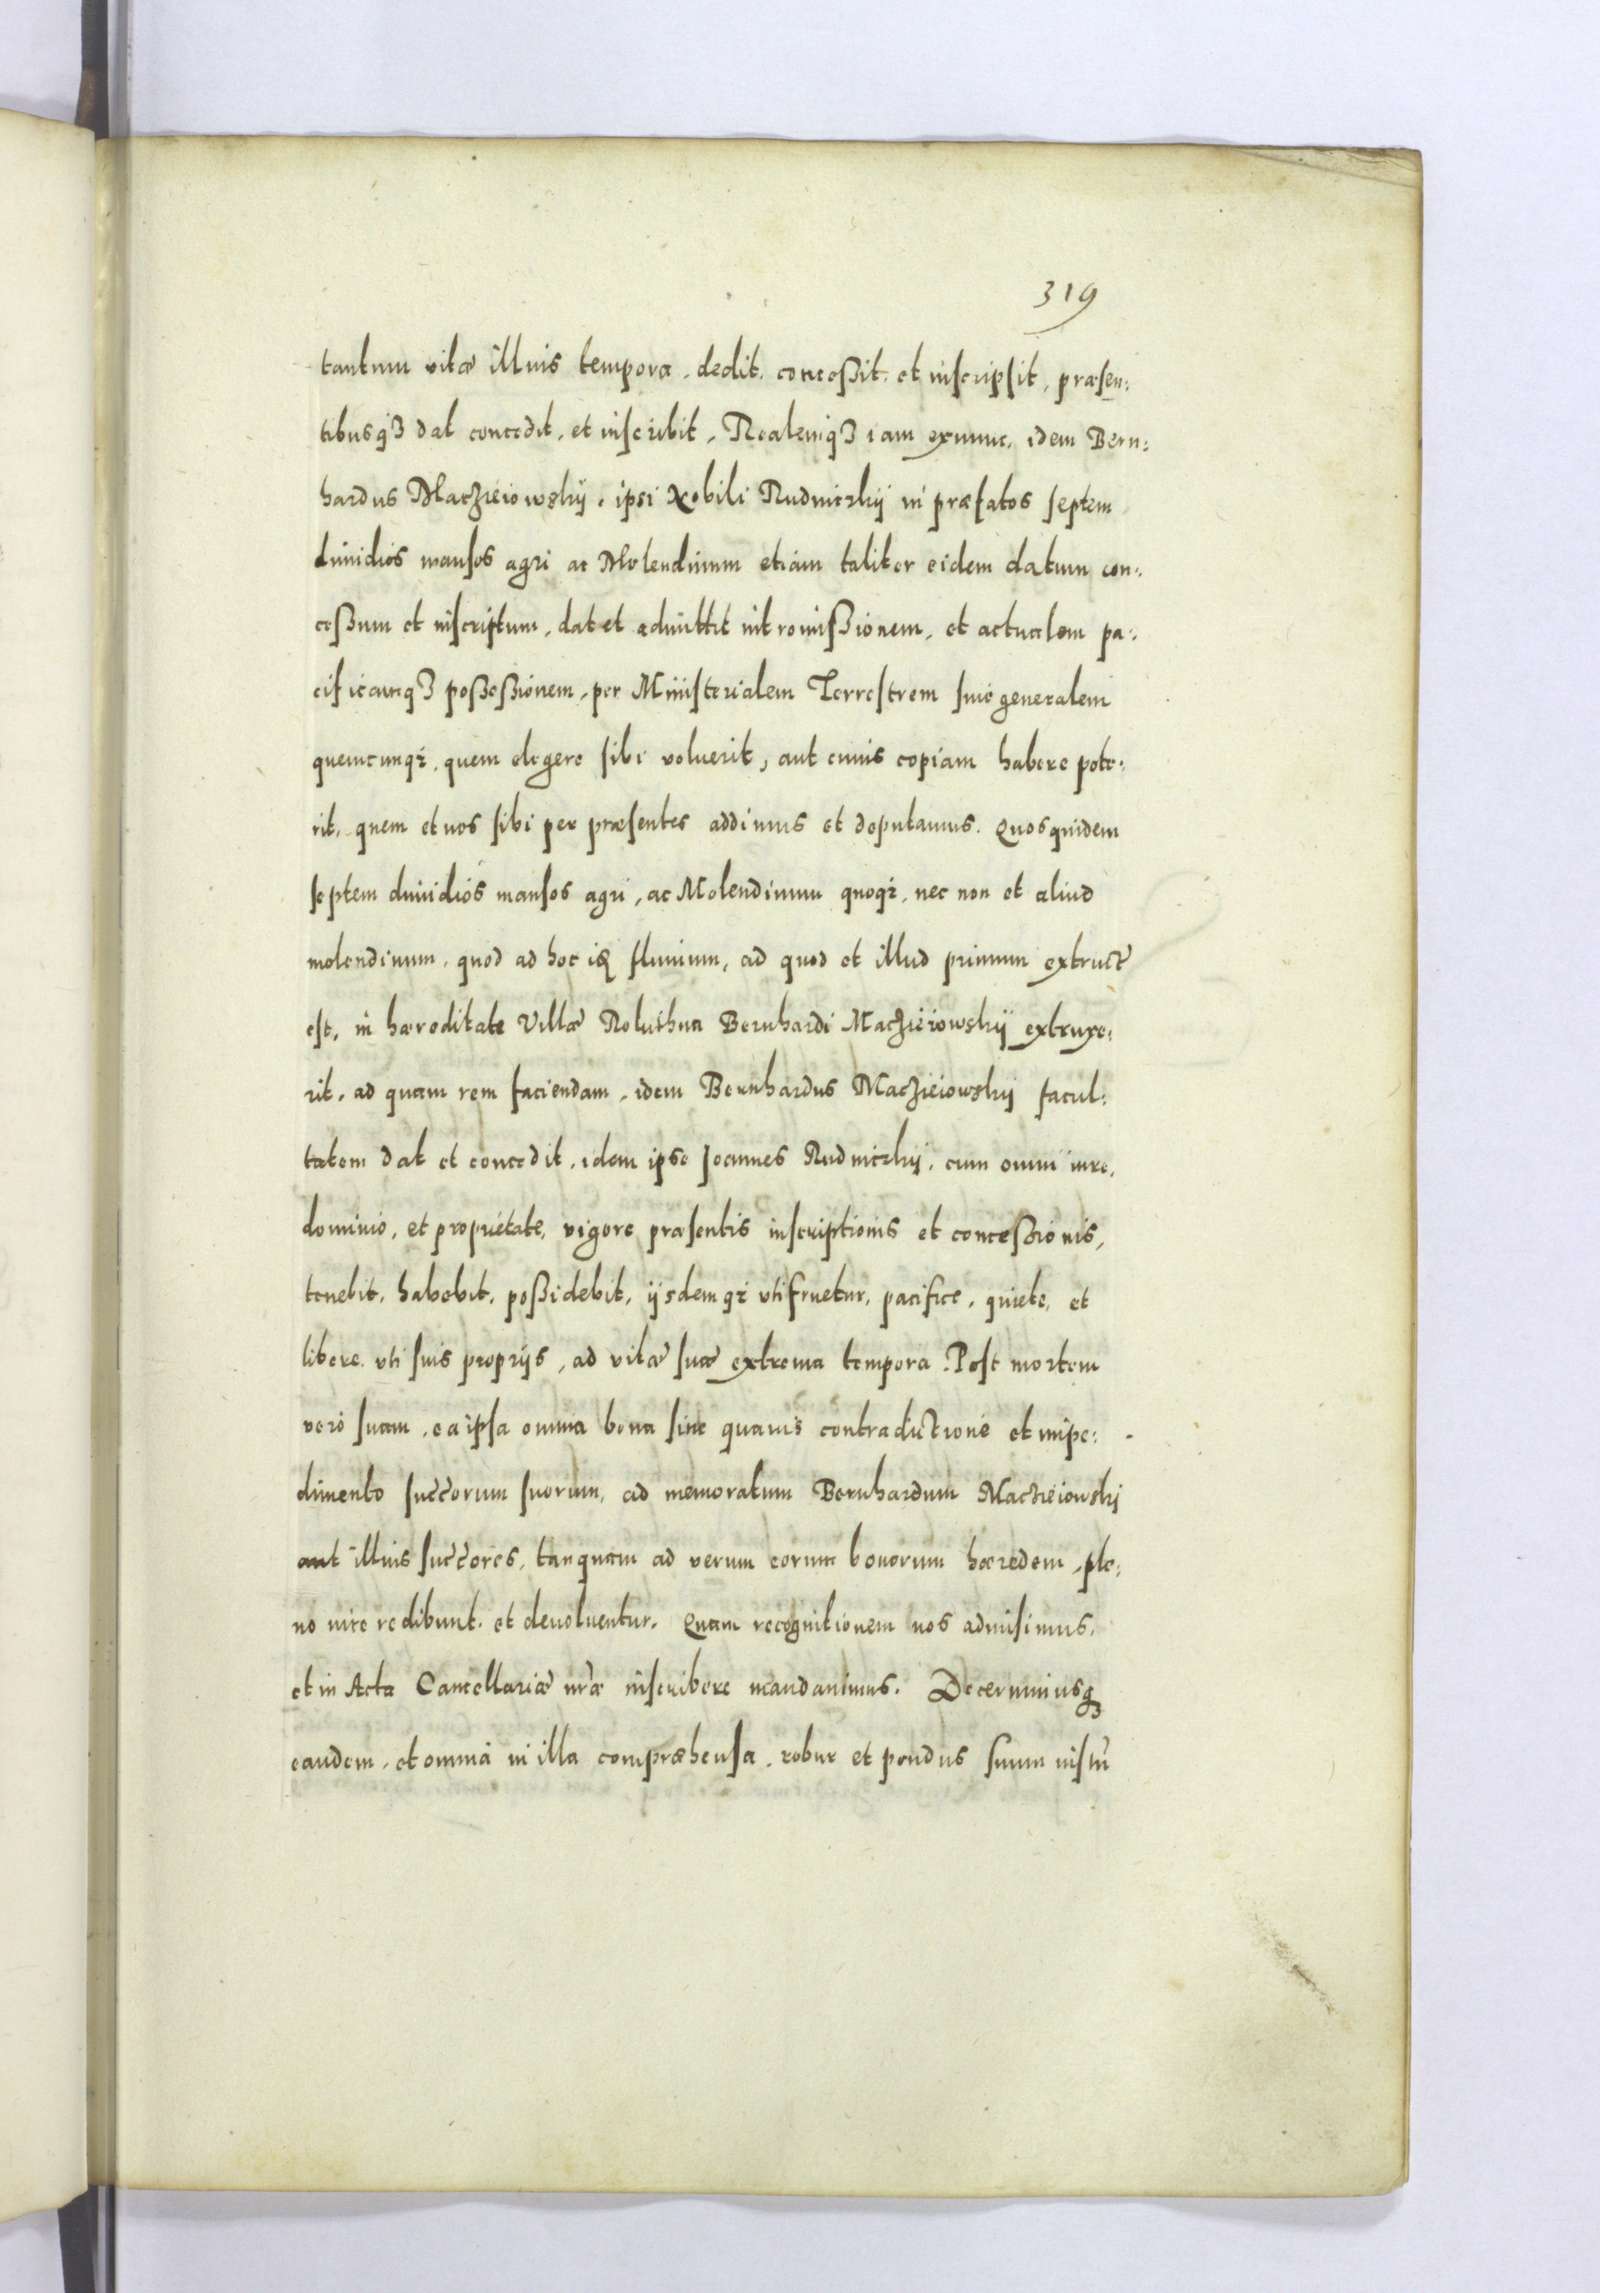 319
tantum vitæ illius tempora, dedit, conceßit, et inscripsit, præsen:
tibusq3 dat concedit, et inscribit, Realemq3 iam exnunc, idem Bern:
hardus Maczieiowskij, ipsi Nobili Rudniczkij in præfatos septem
dimidios mansos agri ac Molendinum etiam taliter eidem datum con:
ceßum et inscriptum, dat et admittit intromißionem, et actualem pa:
cificamq3 poßeßionem, per Ministerialem Terrestrem siue generalem
quemcunq3, quem elegere sibi voluerit, aut cuius copiam habere pote:
rit, quem et nos sibi per præsentes addimus et deputamus. Quosquidem
septem dimidios mansos agri, ac Molendinum quoq3, nec non et aliud
molendinum, quod ad hoc fluuium, ad quod et illud primum extruct̃
est, in hæreditate Villæ Bernhardi Maczieiowskij extruxe:
rit, ad quam rem faciendam, idem Bernhardus Maczieiowskij facul:
tatem dat et concedit, idem ipse Joannes Rudniczkij, cum omni iure,
dominio, et proprietate, vigore præsentis inscriptionis et conceßionis,
tenebit, habebit, poßidebit, ijsdemq3 vtifruetur, pacifice, quiete, et
libere, vti suis proprijs, ad vitæ suæ extrema tempora. Post mortem
vero suam, ea ipsa omnia bona sine quauis contradictione et impe:
dimento succ̃orum suorum, ad memoratum Bernhardum Maczieiowskj
aut illius succ̃ores, tanquam ad verum eorum bonorum hæredem, ple:
no iure redibunt, et deuoluentur. Quam recognitionem nos admisimus,
et in Acta Cancellariæ nr̃æ inscribere mandauimus. Decernimusq3
eandem, et omnia in illa compræhensa, robur et pondus suum iustũ